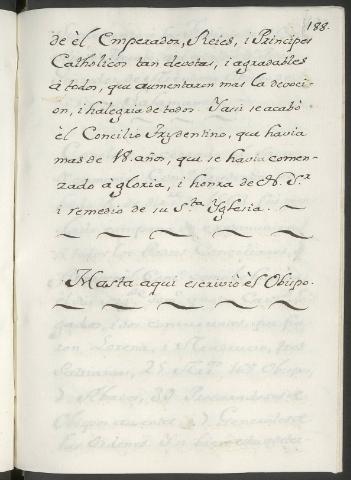 188.
de èl Emperador, Reies, i Principes
Catholicos tan devotas, i agradables
à todos, que aumentaron mas la devoci-
on, i halegria de todos. Yasi se acabò
èl Concilio Trydentino, que havia
mas de 18. años, que se havia comen-
zado à gloria, i honra de N. S.r
i remedio de su S.ta Yglesia.
Hasta aqui escriviò èl Obispo.